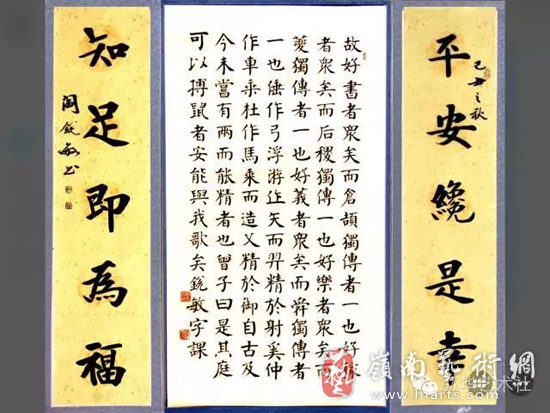 平安纔是幸
己丑之秋
故好書者衆矣而倉頡獨傳者一也好稼
者衆矣而后稷獨傳一也好樂者衆矣而
夔獨傳者一也好義者衆矣而舜獨傳者
一也倕作弓浮游作矢而羿精於射奚仲
作車乘杜作馬乘而造父精於御自古及
今未嘗有兩而能精者也曾子曰是其庭
可以搏鼠者安能與我歌矣銳敏字課
知足即為福
銳敏书
嶺南藝術網
www.lnarts.com